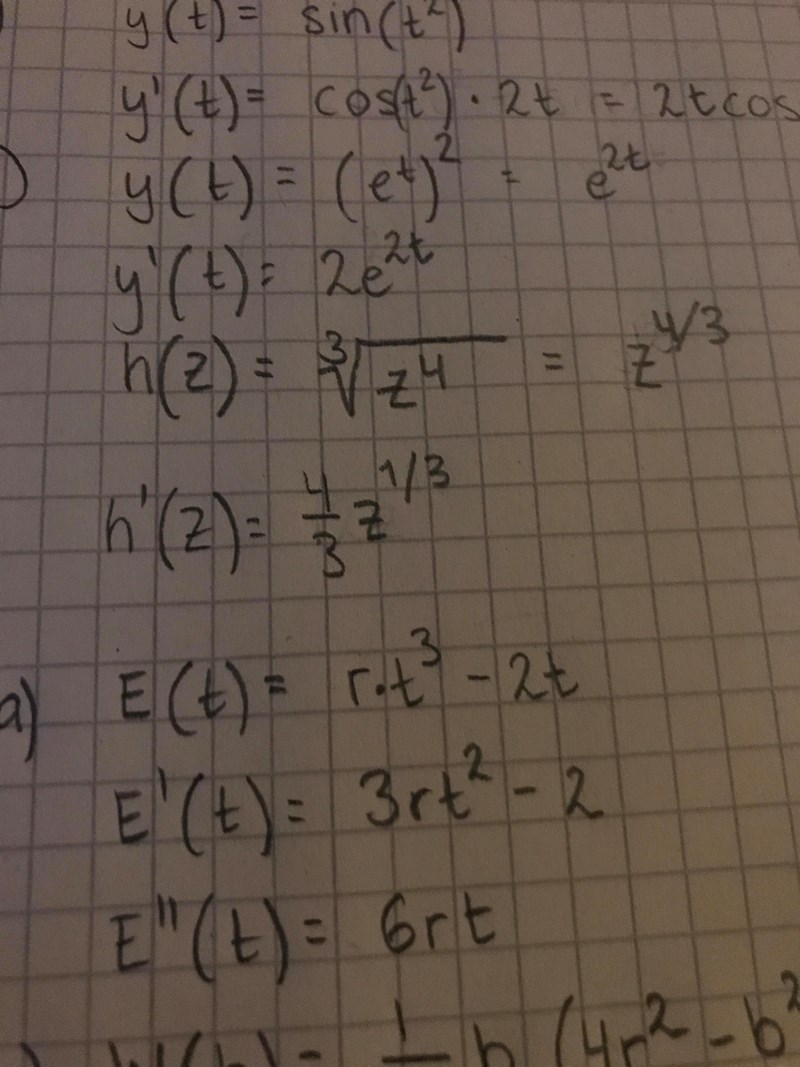 y(t) = sin(t²)
y'(t) = cos(t²) · 2t = 2t cos
) y(t) = (eᵗ)² = e²ᵗ
y'(t) = 2e²ᵗ
h(z) = ∛z⁴ = z^4/3
h'(z) = 4/3 z^1/3
a) E(t) = r·t³ - 2t
E'(t) = 3rt² - 2
E''(t) = 6rt
(4r² - b²